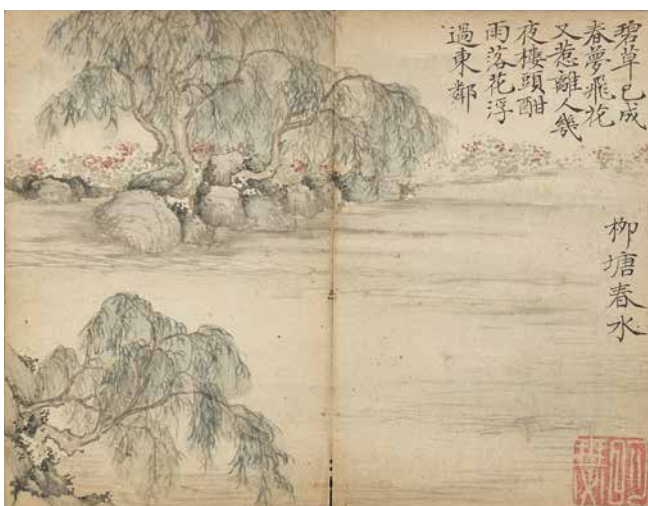 碧草已成
春夢飛花
又惹離人幾
夜樓頭酣
雨落花浮
過東鄰
柳塘春水